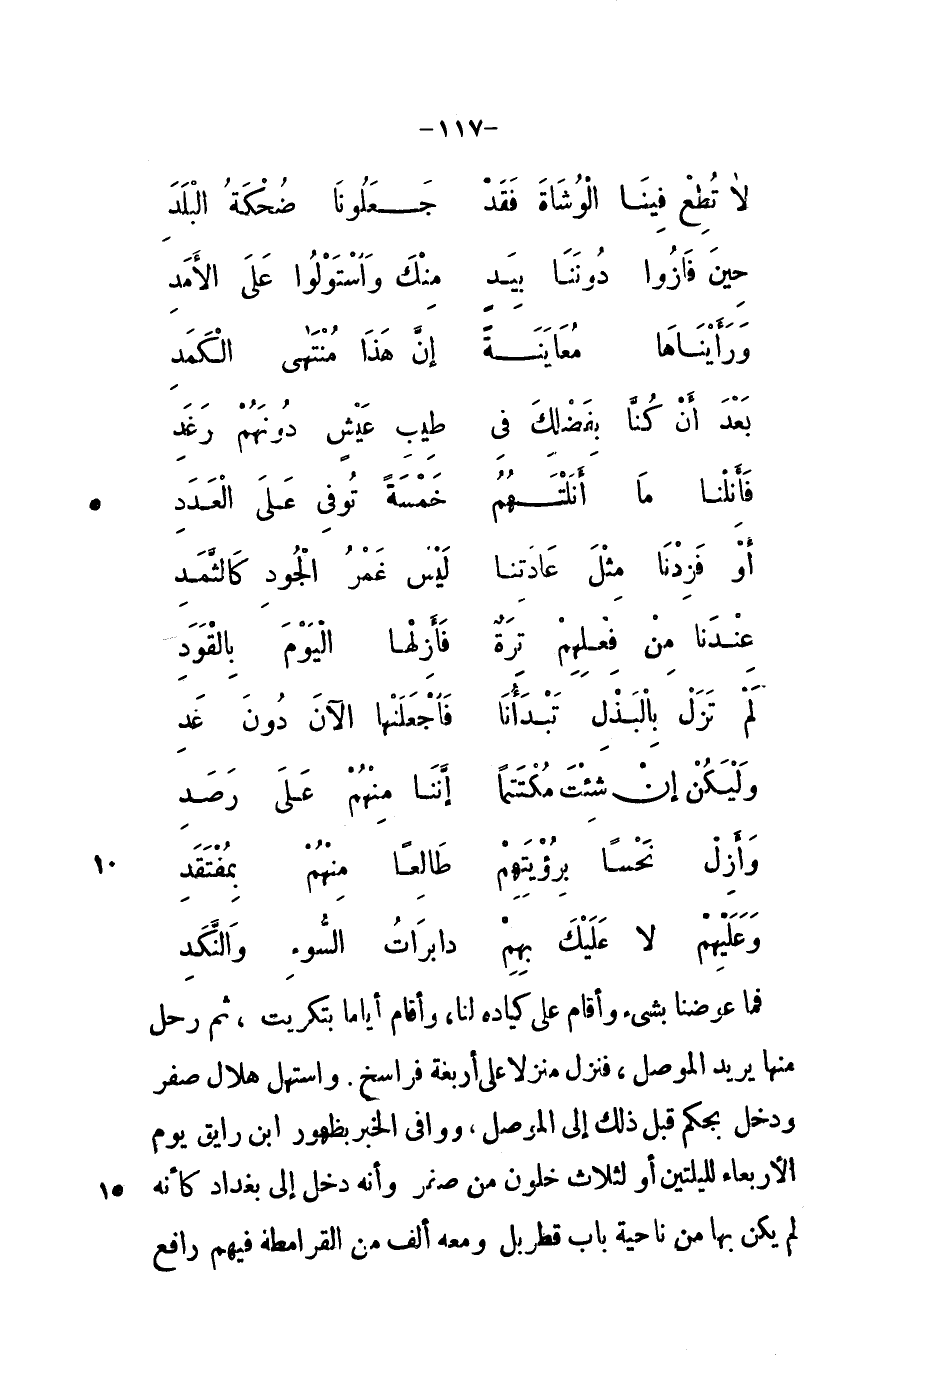 -١١٧-
لَا تُطِعْ فِينَـا الْوُشَاةَ فَقَدْ جَـــعَلُونَا ضُحْكَةُ البَلَدِ
حِينَ فَازُوا دُونَنَـا بِيَـدٍ مِنْكَ وَاَسْتَوْلُوا عَلَى الأَمَدِ
وَرَأَيْنَـاهَا مُعَايَنَـــةً إِنَّ هَذَا مُنْتَهَى الْكَمَدِ
بَعْدَ أَنْ كُنَّا بِفَضْلِكَ فِى طِيبِ عَيْشٍ دُونَهُمْ رَغَدِ
فَأَنِلْنـا مَا أَنَلْتَـــهُمُ خَمْسَةً تُوفِى عَـلَى الْعَدَدِ
٥
أَوْ فَزِدْنَا مِثْلَ عَادَتِنـا لَيْسَ غَمْرُ الْجُودِ كَالثَّمَـدِ
عِنْـدَنا مِنْ فِعْـلِهِمْ تِرَةٌ فَأَزِلْهـا الْيَوْمَ بِالْقَوَدِ
لَمْ تَزَلْ بِالْبَـذْلِ تَبْـدَأُنَا فَاَجْعَلَنْها الآنَ دُونَ غَدِ
وَلْيَـكُنْ إِنْ شئْتَ مكْتَتَمًا إِنَّنَـا مِنْهُمْ عَـلَى رَصَـدِ
وَأَزِلْ نَحْسـًا بِرُؤْيَتِهِمْ طَالِعـًا مِنْهُمْ بِمُفْتَقَدِ
١٠
وَعَلَيْهِمْ لا عَلَيْكَ بِهِمْ دابِرَاتُ السُّوءِ وَالنَّكَدِ
فما عوضنا بشىء وأقام على كياده لنا، وأقام أياما بتكريت ، ثم رحل
منها يريد الموصل ، فنزل منزلا على أربعة فراسخ . واستهل هلال صفر
ودخل بجكم قبل ذلك إلى الموصل ، ووافى الخبر بظهور ابن رايق يوم
الأربعاء لليلتين أو لثلاث خلون من صفر وأنه دخل إلى بغداد كأنه
١٥
لم يكن بها من ناحية باب قطربل ومعه ألف من القرامطة فيهم رافع